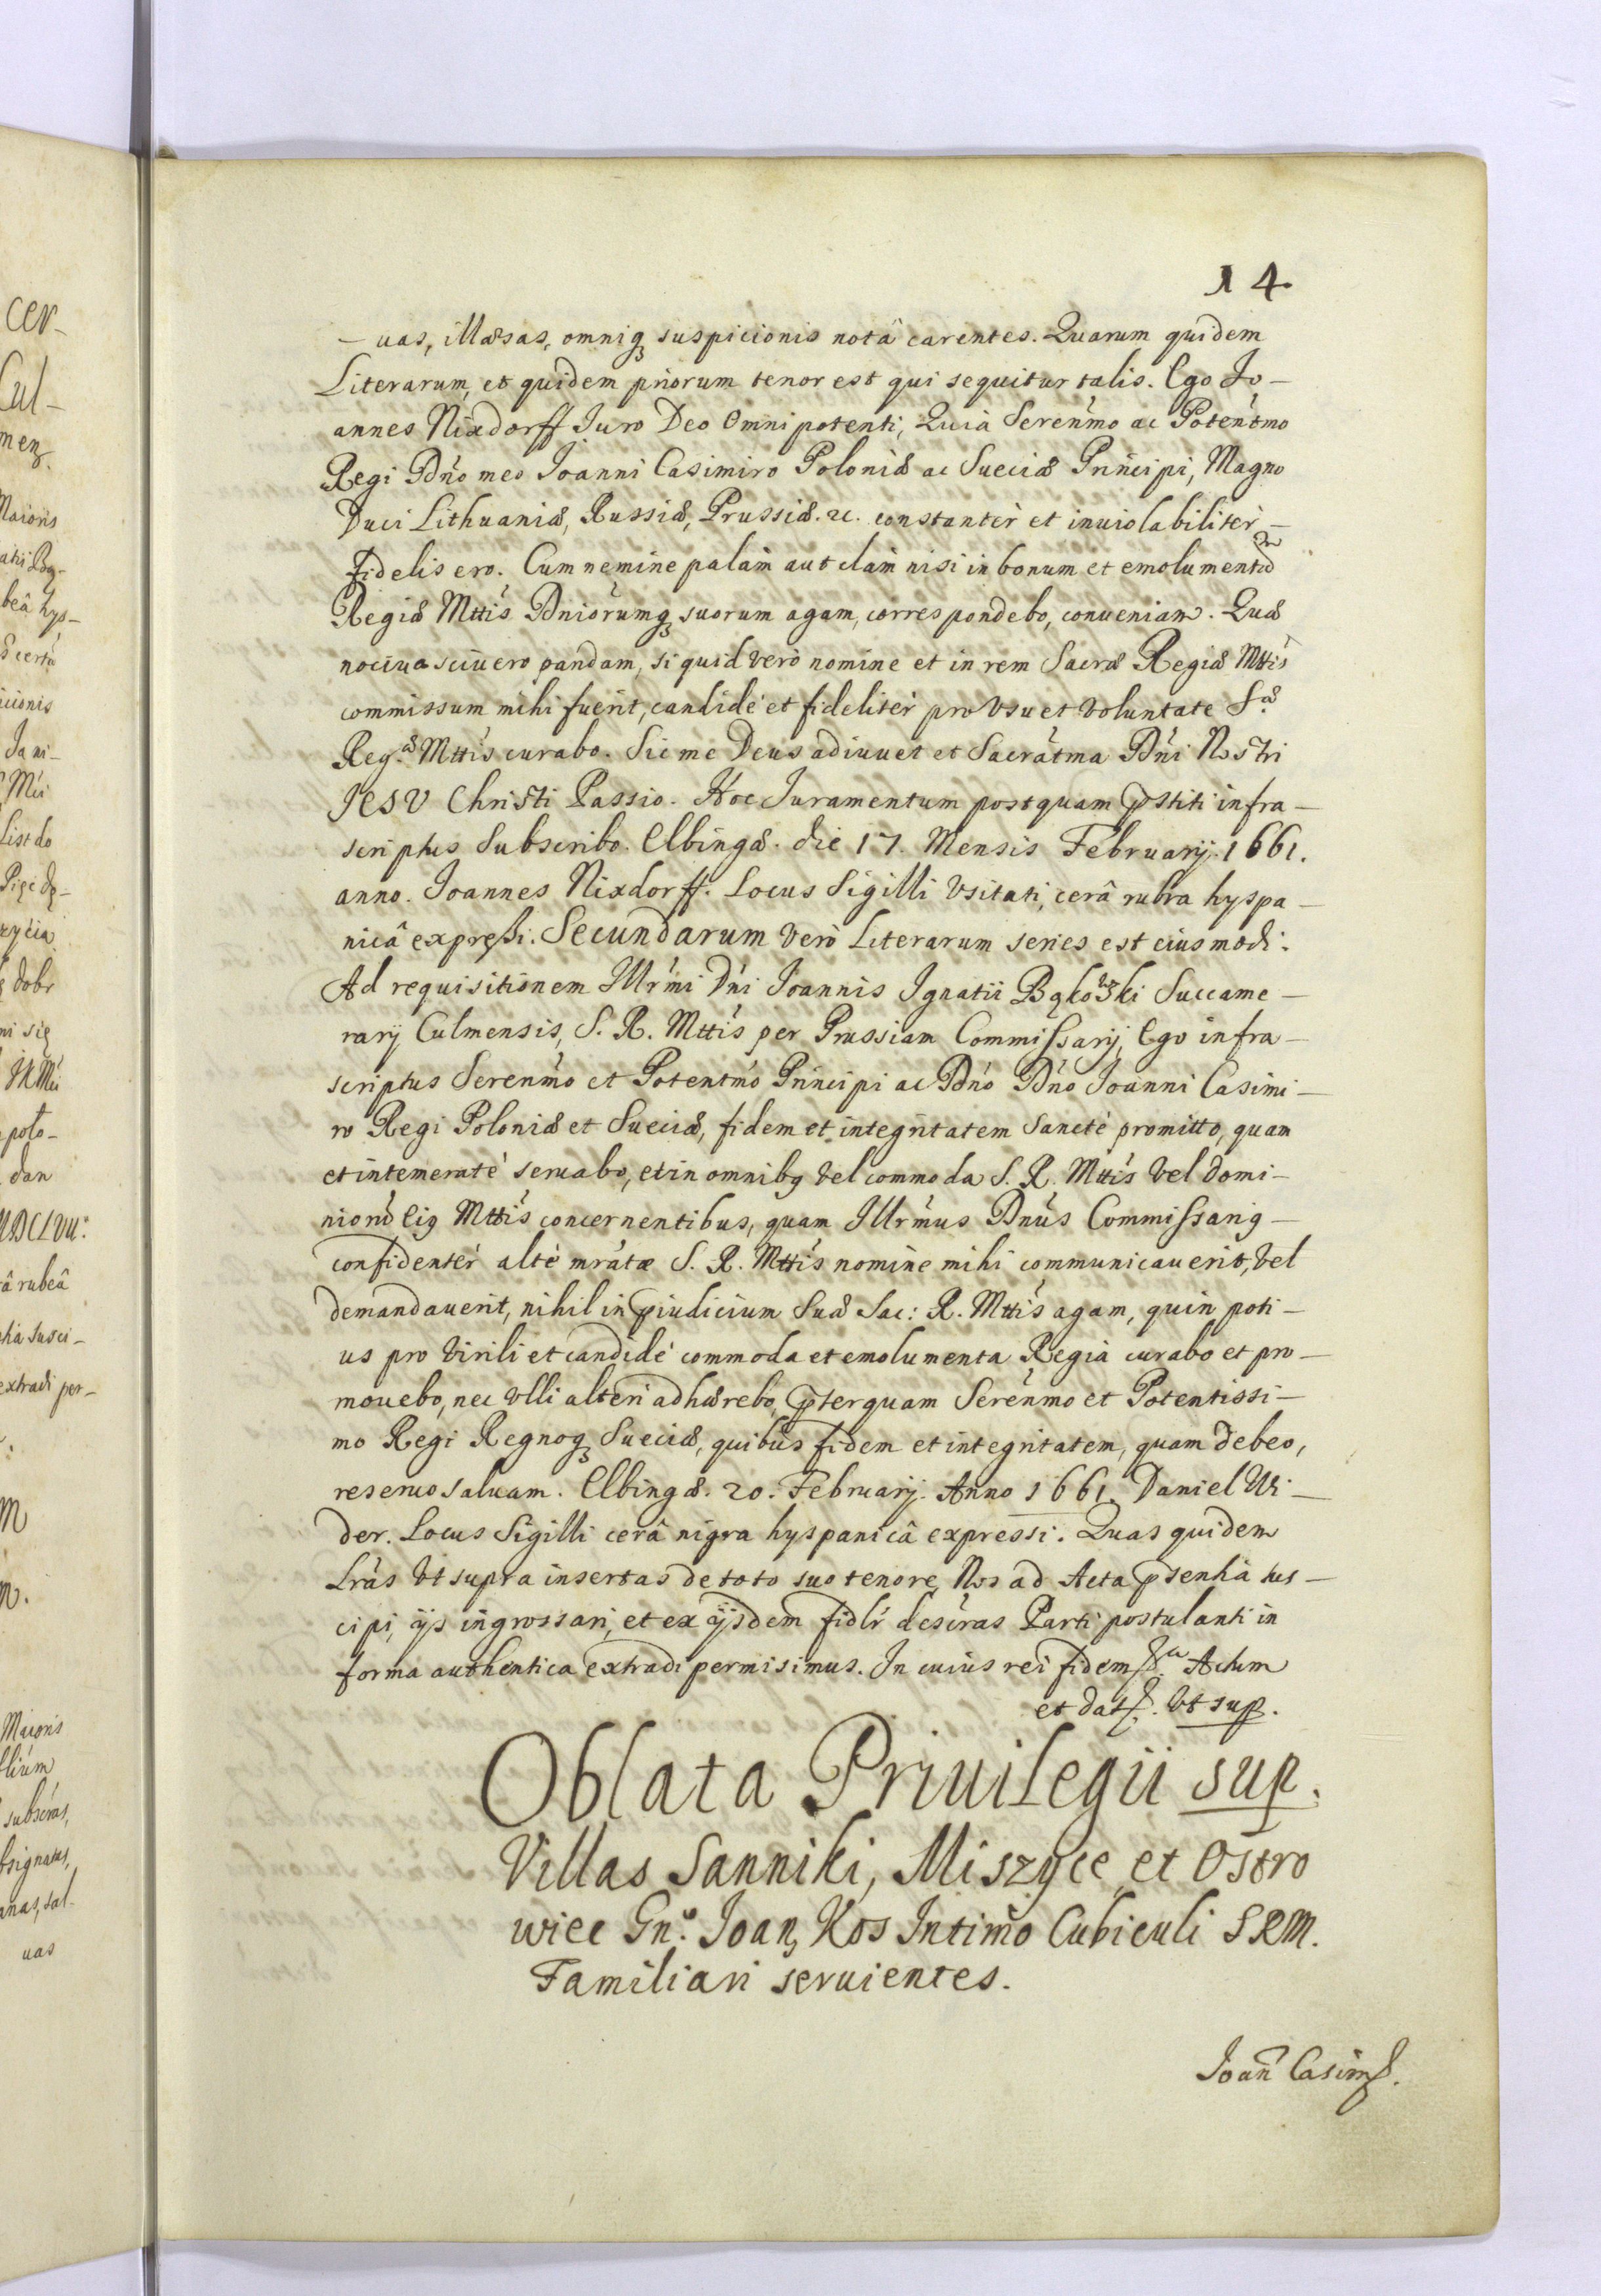 14.
– uas, illæsas, omniq₃ suspicionis notâ carentes. Quarum quidem
Literarum, et quidem priorum tenor est qui sequitur talis. Ego Jo–
annes Nixdorff Juro Deo Omnipotenti, Quià Serenḿo ac Potentḿo
Regi Dńo meo Joanni Casimiro Poloniæ ac Sueciæ Principi, Magno
Duci Lithuaniæ, Russiæ, Prussiæ. &c. constantèr et inuiolabilitèr –
fidelis ero. Cum nemine palàm aut clàm nisi in bonum et emolumentũ
Regiæ Mttis Dniorumq₃ suorum agam, correspondebo, conueniam. Quæ
nociua sciuero pandam, si quid verò nomine et in rem Sacræ Regiæ Mttis
commissum mihi fuerit, candidè et fidelitèr pro vsu et voluntate Sæ
Reg.æ Mttis curabo. Sic me Deus adiuuet et Sacratma Dńi Nostri
JESV Christi Passio. Hoc Juramentum postquam p̄stiti infra–
scriptus Subscribo. Elbingæ. die 17. Mensis Februarij. 1661.
anno. Joannes Nixdorff. Locus Sigilli vsitati, cerâ rubra hyspa–
nicâ expreßi. Secundarum verò Literarum series est eiusmodi.
Ad requisitionem Illrḿi Dńi Joannis Ignatii Bąkowski Succame–
rarij Culmensis, S. R. Mttis per Prussiam Commissarij, Ego infra–
scriptus Serenḿo et Potentḿo Principi ac Dńo Dńo Joanni Casimi–
ro Regi Poloniæ et Sueciæ, fidem et integritatem Sanctè promitto, quam
et intemeratè seruabo, et in omnibq vel commoda S. R. Mttis vel domi–
niorũ eiq Mttis concernentibus, quam Illrḿus Dńus Commissariq –
confidentèr altè mratæ S. R. Mttis nomine mihi communicauerit, vel
demandauerit, nihil in p̄iudicium Suæ Sac: R. Mttis agam, quin poti–
us pro virili et candidè commoda et emolumenta Regia curabo et pro–
mouebo, nec vlli alteri adhærebo, p̄terquam Serenḿo et Potentissi–
mo Regi Regnoq₃ Sueciæ, quibus fidem et integritatem, quam debeo,
reseruo saluam. Elbingæ. 20. Februarij. Anno 1661. Daniel Wi–
der. Locus Sigilli cerâ nigra hyspanicâ expressi. Quas quidem
Lrás vt supra insertas de toto suo tenore, Nos ad Acta p̄sentia sus–
cipi, ijs ingrossari, et ex ijsdem fidlr descras Parti postulanti in
forma authentica extradi permisimus. In cuius rei fidem Actum
et dat. vt sup.
Oblata Priuilegii sup.
Villas Sanniki, Miszyce et Ostro
wiec Gn.o Joan₃ Kos Intimo Cubiculi SRM.
Familiari seruientes.
Joañ Casim.
cer–
Cul–
Maioris
beâ hys–
icionis
Ja ni–
List do
dobr
ni się
poło–
dan
MDCLVII:
â rubeâ
tia susci–
extradi per–
Maioris
uas